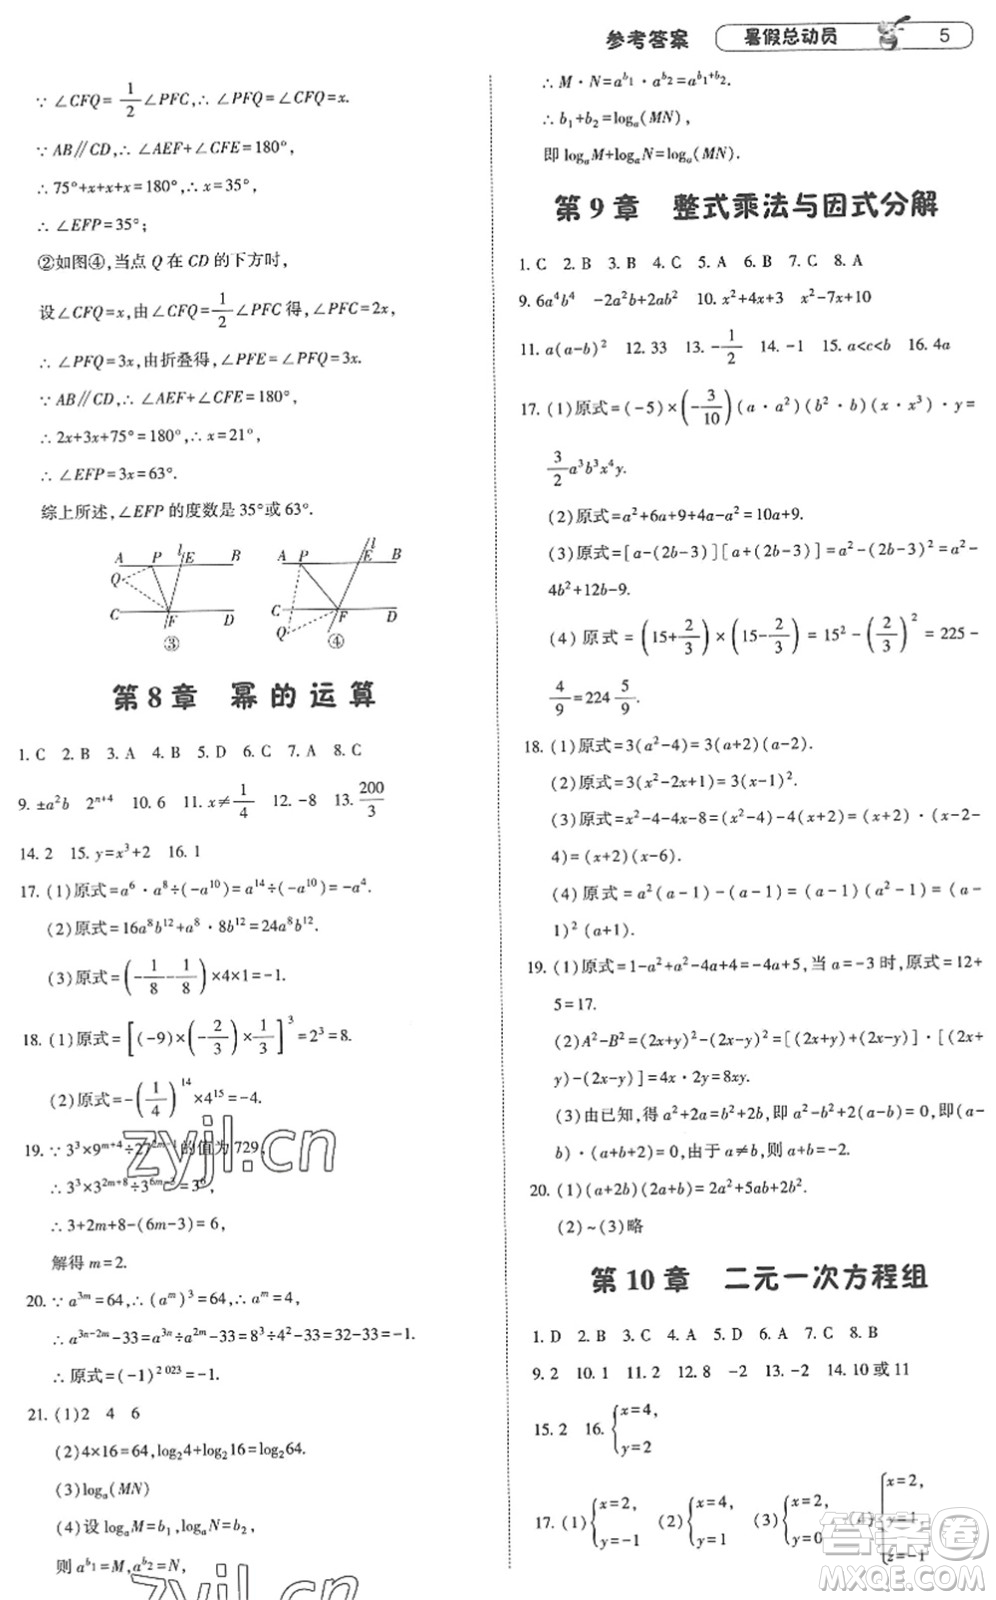 参考答案 暑假总动员 5
∵ ∠CFQ=1/2∠PFC,∴ ∠PFQ=∠CFQ=x.
∵ AB∥CD,∴ ∠AEF+∠CFE=180°,
∴ 75°+x+x+x=180°,∴ x=35°,
∴ ∠EFP=35°;
②如图④,当点 Q 在 CD 的下方时,
设∠CFQ=x,由∠CFQ=1/2∠PFC 得,∠PFC=2x,
∴ ∠PFQ=3x,由折叠得,∠PFE=∠PFQ=3x.
∵ AB∥CD,∴ ∠AEF+∠CFE=180°,
∴ 2x+3x+75°=180°,∴ x=21°,
∴ ∠EFP=3x=63°.
综上所述,∠EFP 的度数是 35°或 63°.
A P l E B
Q
C F D
③
A P l E B
C F D
Q
④
第 8 章 幂的运算
1. C 2. B 3. A 4. B 5. D 6. C 7. A 8. C
9. ±a²b 2ⁿ⁺⁴ 10. 6 11. x≠1/4 12. -8 13. 200/3
14. 2 15. y=x³+2 16. 1
17. (1)原式=a⁶·a⁸÷(-a¹⁰)=a¹⁴÷(-a¹⁰)=-a⁴.
(2)原式=16a⁸b¹²+a⁸·8b¹²=24a⁸b¹².
(3)原式=(-1/8-1/8)×4×1=-1.
18. (1)原式=[(-9)×(-2/3)×1/3]³=2³=8.
(2)原式=-(1/4)¹⁴×4¹⁵=-4.
19. ∵ 3³×9ᵐ⁺⁴÷27²ᵐ⁻¹的值为 729,
∴ 3³×3²ᵐ⁺⁸÷3⁶ᵐ⁻³=3⁶,
∴ 3+2m+8-(6m-3)=6,
解得 m=2.
20. ∵ a³ᵐ=64,∴ (aᵐ)³=64,∴ aᵐ=4,
∴ a³ⁿ⁻²ᵐ-33=a³ⁿ÷a²ᵐ-33=8³÷4²-33=32-33=-1.
∴ 原式=(-1)²⁰²³=-1.
21. (1)2 4 6
(2)4×16=64,log₂4+log₂16=log₂64.
(3)logₐ(MN)
(4)设 logₐM=b₁,logₐN=b₂,
则 a^b₁=M,a^b₂=N,
∴ M·N=a^b₁·a^b₂=a^(b₁+b₂).
∴ b₁+b₂=logₐ(MN),
即 logₐM+logₐN=logₐ(MN).
第 9 章 整式乘法与因式分解
1. C 2. B 3. B 4. C 5. A 6. B 7. C 8. A
9. 6a⁴b⁴ -2a²b+2ab² 10. x²+4x+3 x²-7x+10
11. a(a-b)² 12. 33 13. -1/2 14. -1 15. a<c<b 16. 4a
17. (1)原式=(-5)×(-3/10)(a·a²)(b²·b)(x·x³)·y=
3/2a³b³x⁴y.
(2)原式=a²+6a+9+4a-a²=10a+9.
(3)原式=[a-(2b-3)][a+(2b-3)]=a²-(2b-3)²=a²-
4b²+12b-9.
(4)原式=(15+2/3)×(15-2/3)=15²-(2/3)²=225-
4/9=224 5/9.
18. (1)原式=3(a²-4)=3(a+2)(a-2).
(2)原式=3(x²-2x+1)=3(x-1)².
(3)原式=x²-4-4x-8=(x²-4)-4(x+2)=(x+2)(x-2-
4)=(x+2)(x-6).
(4)原式=a²(a-1)-(a-1)=(a-1)(a²-1)=(a-
1)²(a+1).
19. (1)原式=1-a²+a²-4a+4=-4a+5,当 a=-3 时,原式=12+
5=17.
(2)A²-B²=(2x+y)²-(2x-y)²=[(2x+y)+(2x-y)]·[(2x+
y)-(2x-y)]=4x·2y=8xy.
(3)由已知,得 a²+2a=b²+2b,即 a²-b²+2(a-b)=0,即(a-
b)·(a+b+2)=0,由于 a≠b,则 a+b=-2.
20. (1)(a+2b)(2a+b)=2a²+5ab+2b².
(2)~(3)略
第 10 章 二元一次方程组
1. D 2. B 3. C 4. B 5. D 6. A 7. C 8. B
9. 2 10. 1 11. 2 12. 8 -2 13. -2 14. 10 或 11
15. 2 16. {x=4, y=2
17. (1){x=2, y=-1 (2){x=4, y=1 (3){x=2, y=0 (4){x=2, y=1, z=-1
zyjl.cn
zyjl.cn
答案圈
MXQE.COM